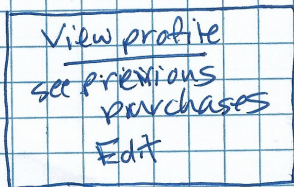 View profile
see previous
purchases
Edit